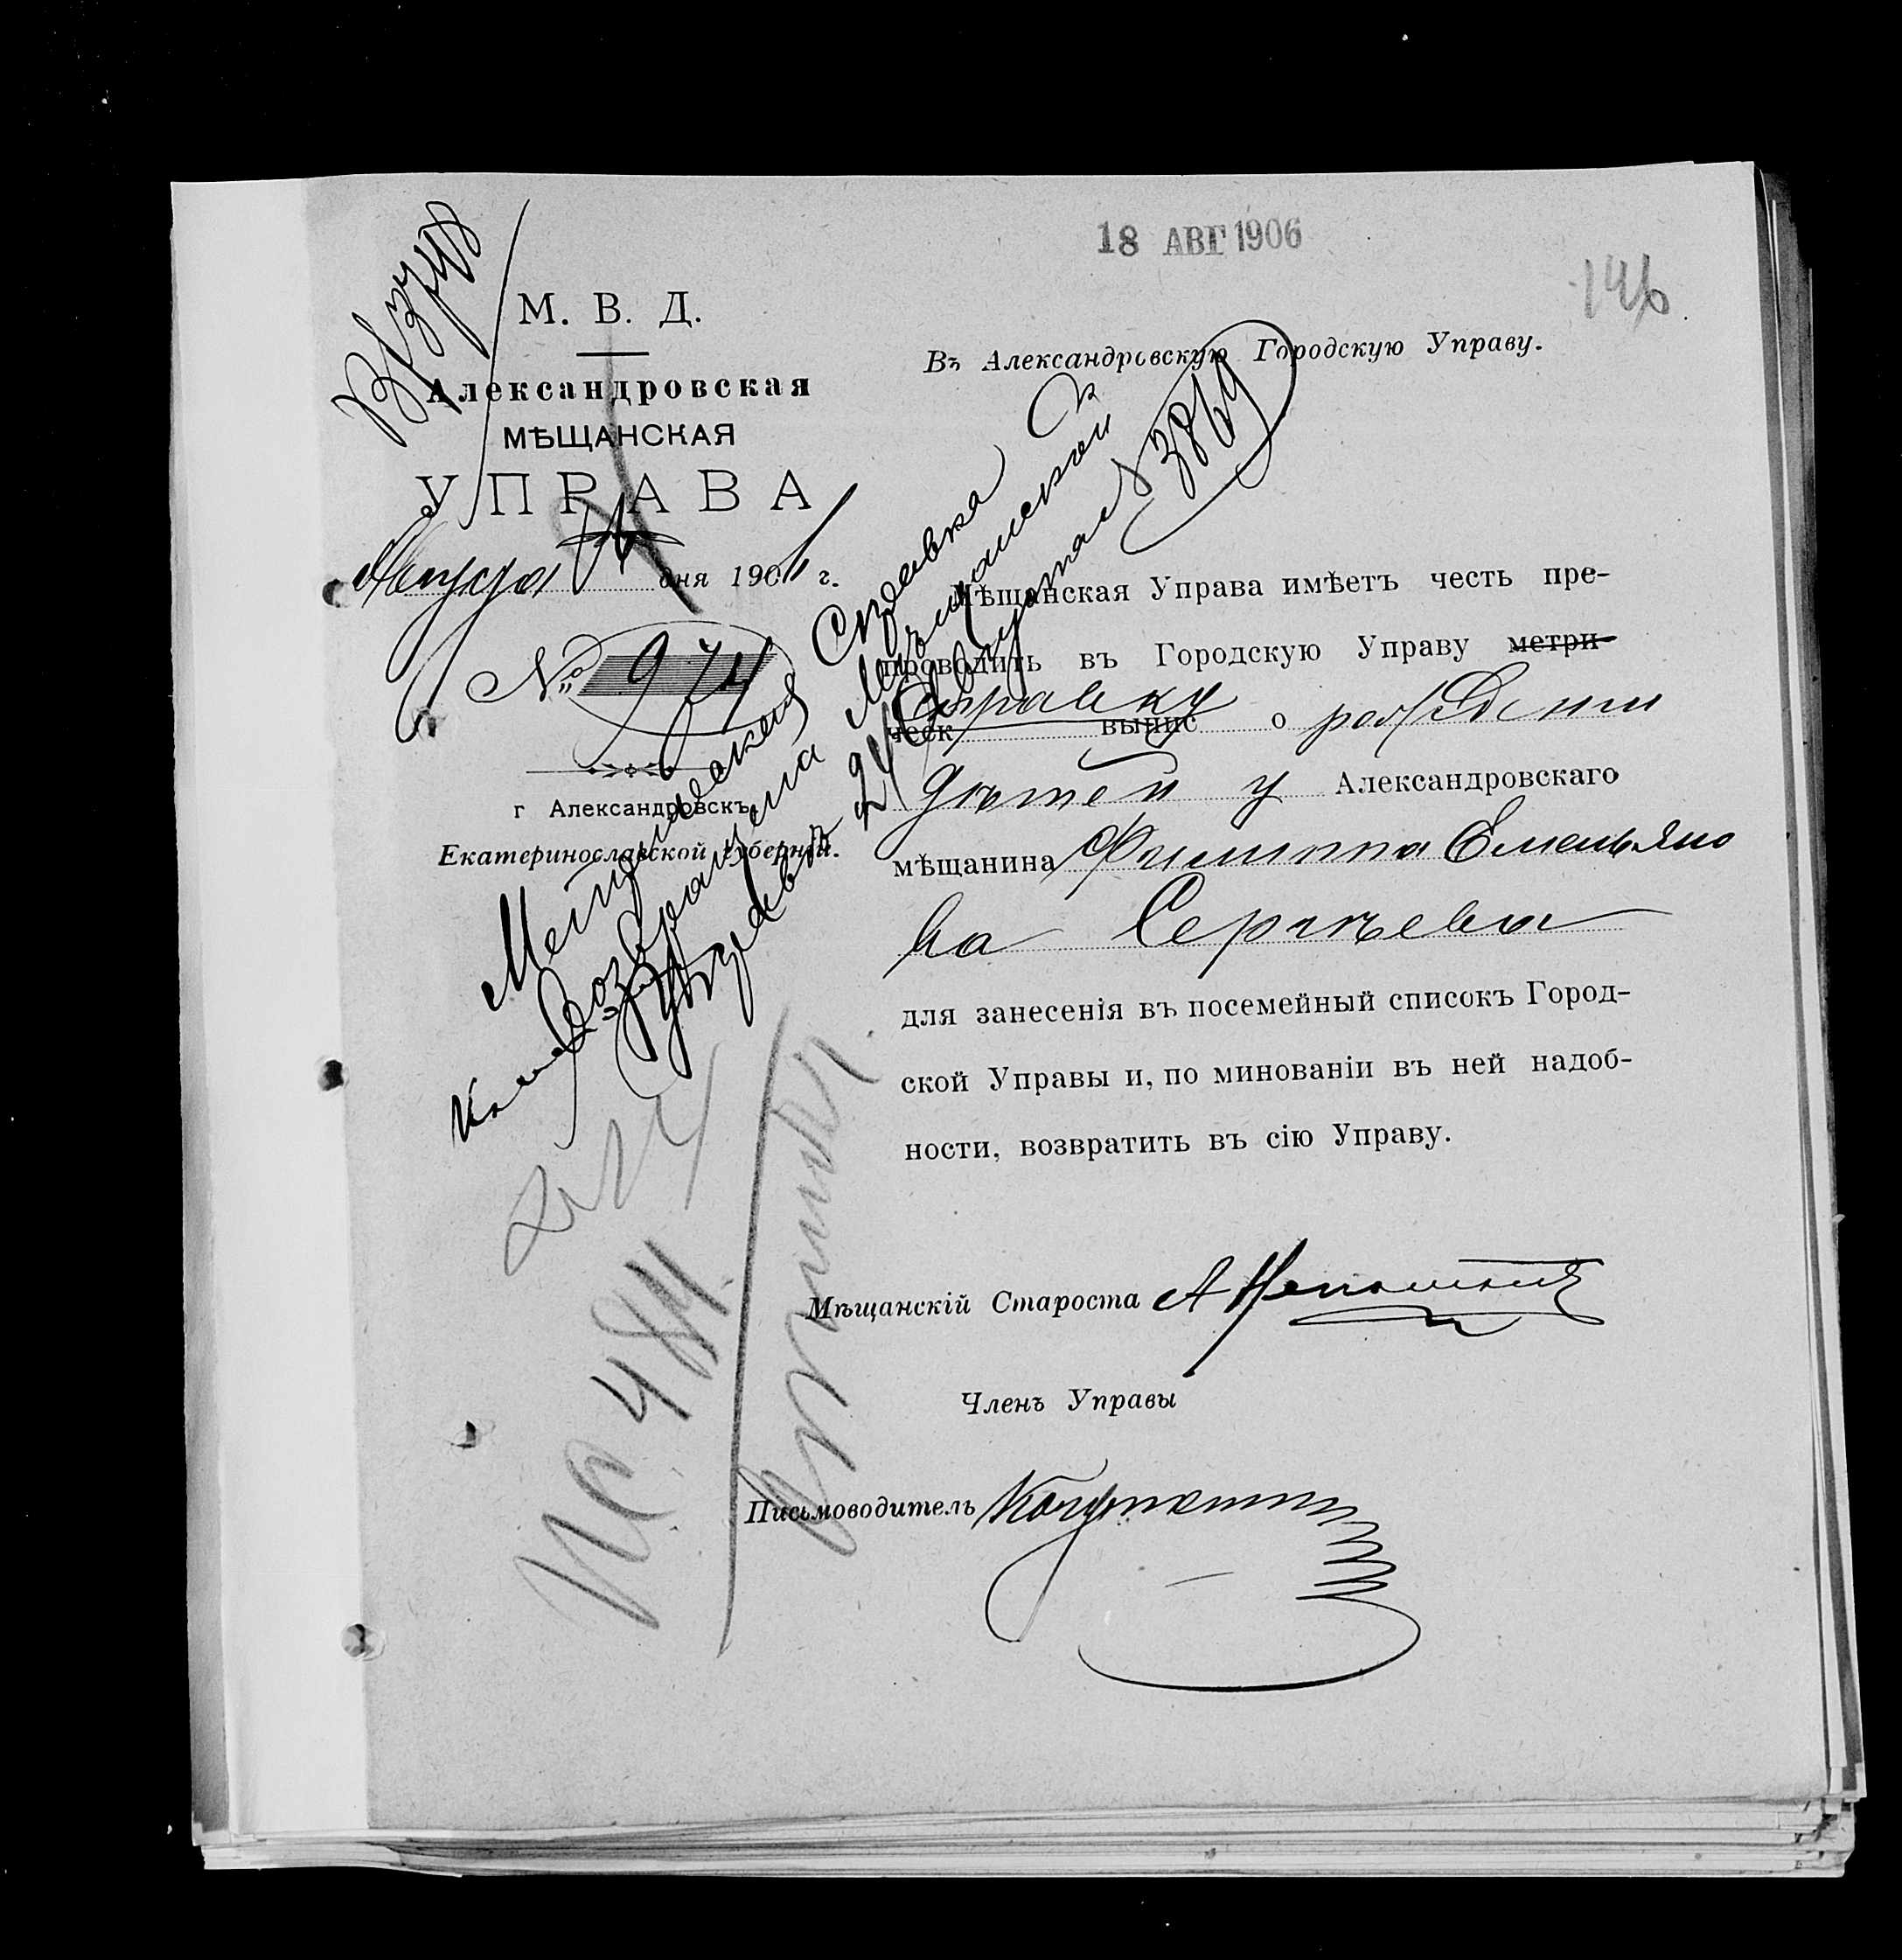 18 АВГ 1906
146
М. В. Д.
Александровская
МѢЩАНСКАЯ
УПРАВА
Августа дня 1906 г.
№ 974
г Александровскъ,
Екатеринославской губерніи.
Въ Александровскую Городскую Управу.
Мѣщанская Управа имѣетъ честь пре-
проводить въ Городскую Управу метри-
ческ Справку выпис о рожденіи
дѣтей у Александровскаго
мѣщанина Филиппа Емельяно
ва Сергѣева
для занесенія въ посемейный списокъ Город-
ской Управы и, по минованіи въ ней надоб-
ности, возвратить въ сію Управу.
Мѣщанскій Староста
Членъ Управы
Письмоводитель
Метрическая Справка
возвращена Мѣщанской
Управѣ 24 Августа № 3869